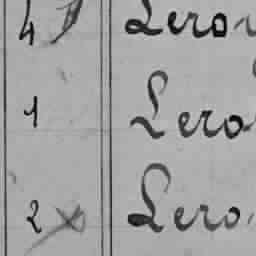 4 Lero
1 Lero
2 Lero